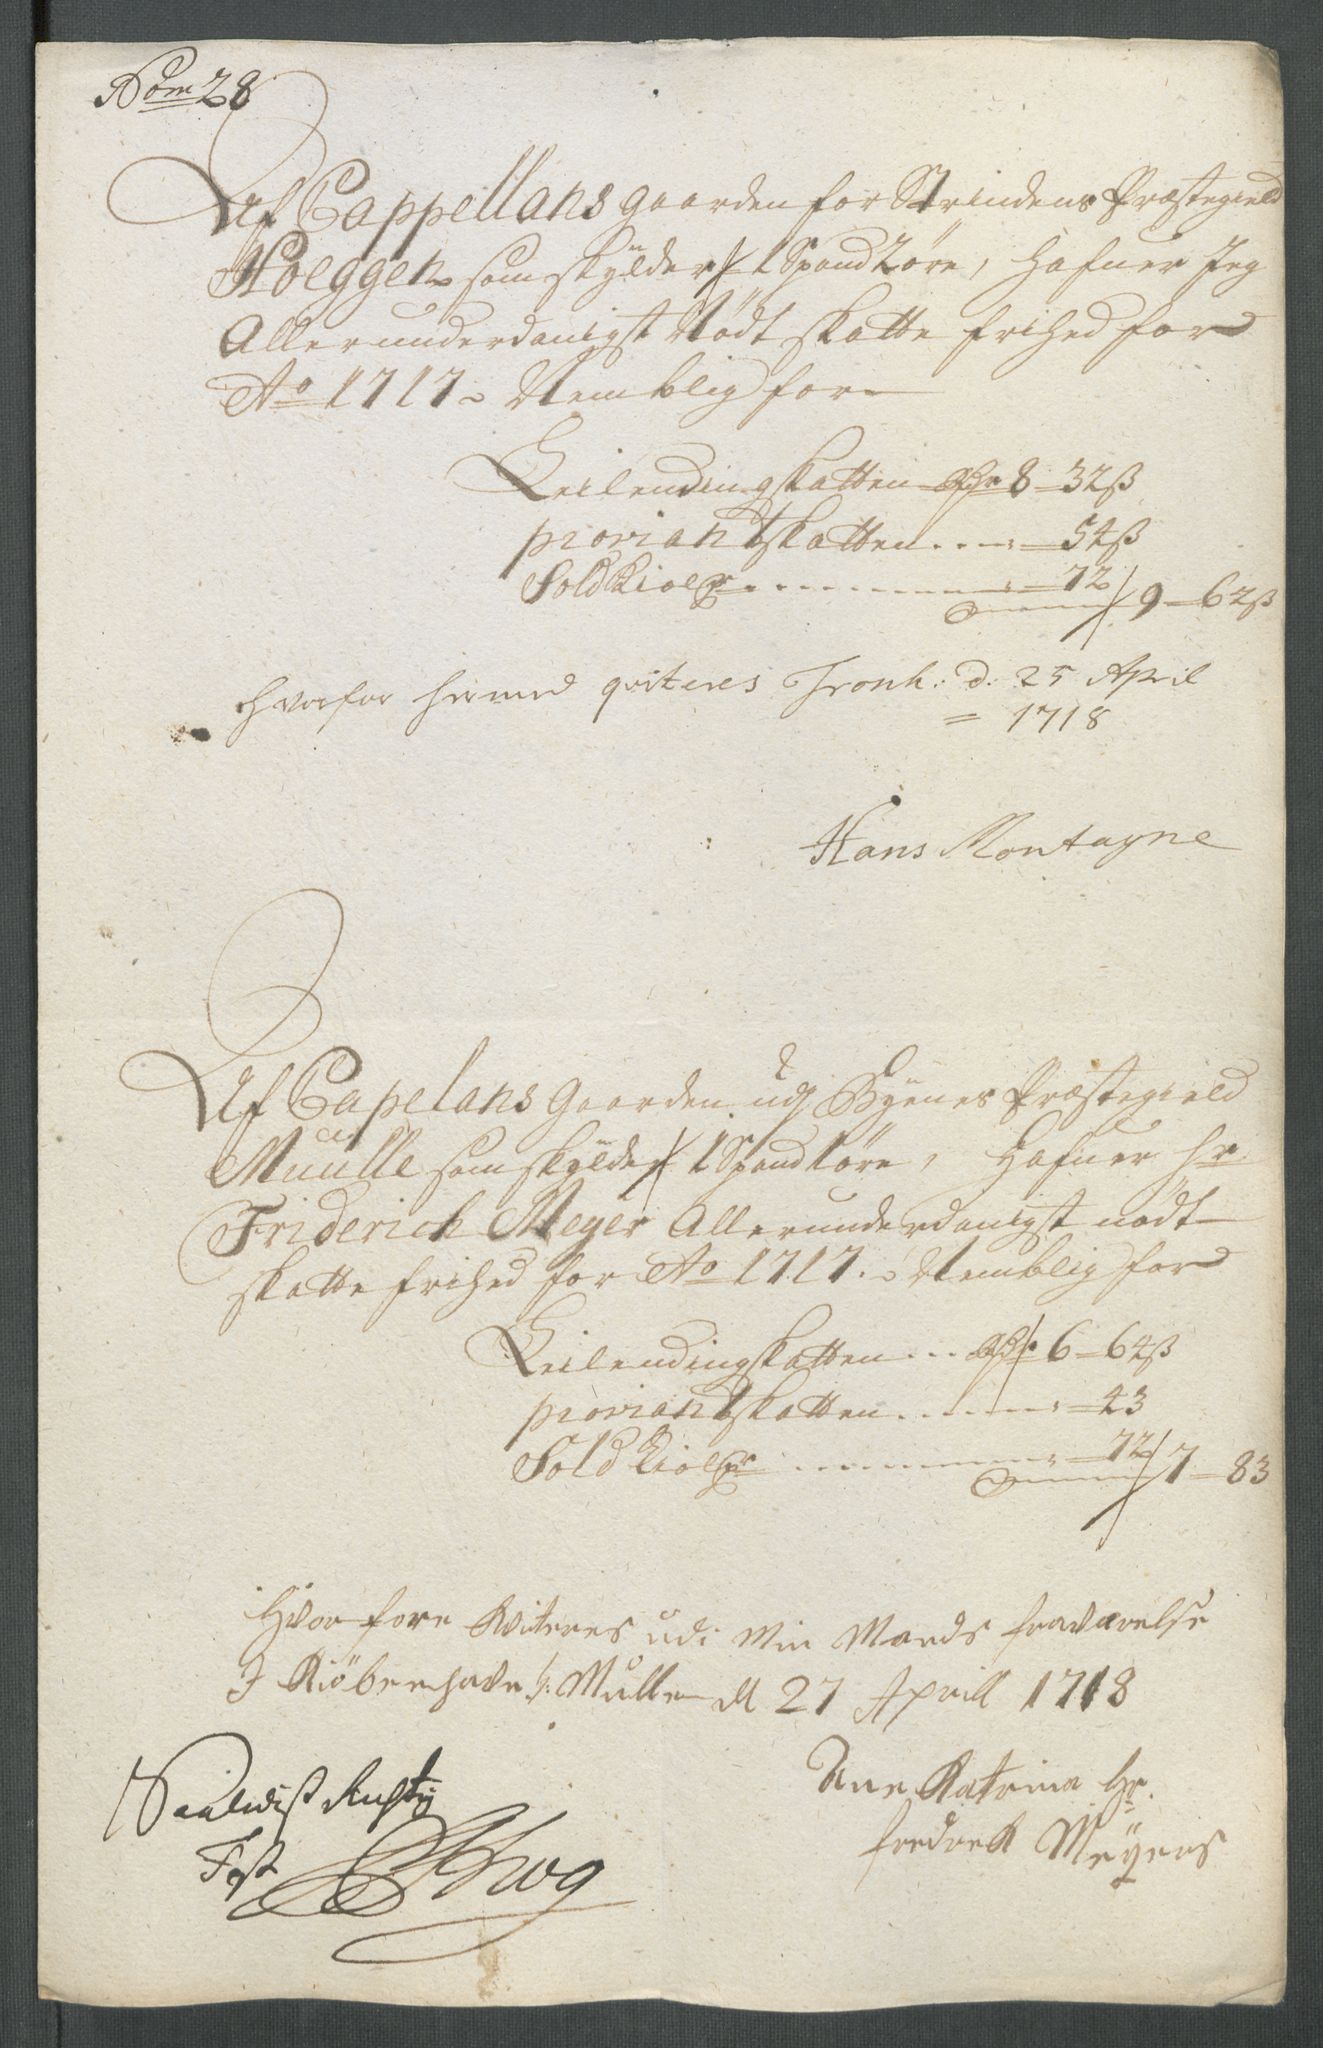 Nom 28
Af Cappellans gaarden for Strindens Præstegield
Hoeggen som skylder 1 Spand 2 øre, Hafuer Jeg
Allerunderdanigst Nødt skatte frihed for
Ao 1717 Nemblig for
Leilendingskatten rdr 8 - 32 ß
proviantskatten .... 54 ß
Foldkiolepr .......... 72 / 9 - 62 ß
hvorfor hermed qviteres Tronh: d: 25 April
= 1718
Hans Montagne
Af Capelans Gaarden udj Byenes Præstegield
Muulle som skylder 1 Spand 1 øre, Hafuer hr
Friderich Meyer Allerunderdanigst nødt
skatte frihed for Ao 1717. Nemblig for
Leilendingskatten ... rdr 6 - 64 ß
proviantskatten ...... 43
Foldkiolepr ......... 72 / 7 - 83
Hvor fore kviteres udi Min Mands fraværelse
I Kiöbenhavn /: Mulle d 27 Aprill 1718
Ane Katrina Hr.
fredrek Meÿers